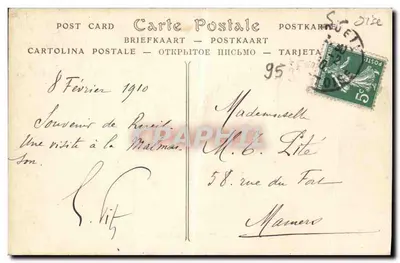 POST CARD Carte Postale POSTKARTE
BRIEFKAART — POSTKAART
CARTOLINA POSTALE — ОТКРЫТОЕ ПИСЬМО — TARJETA
Oise
95
5c
8 Février 1910
Souvenir de Rueil
Une visite à la Malmai
son.
Mademoiselle
M. C. Pité
58 rue du Fort
Mamers